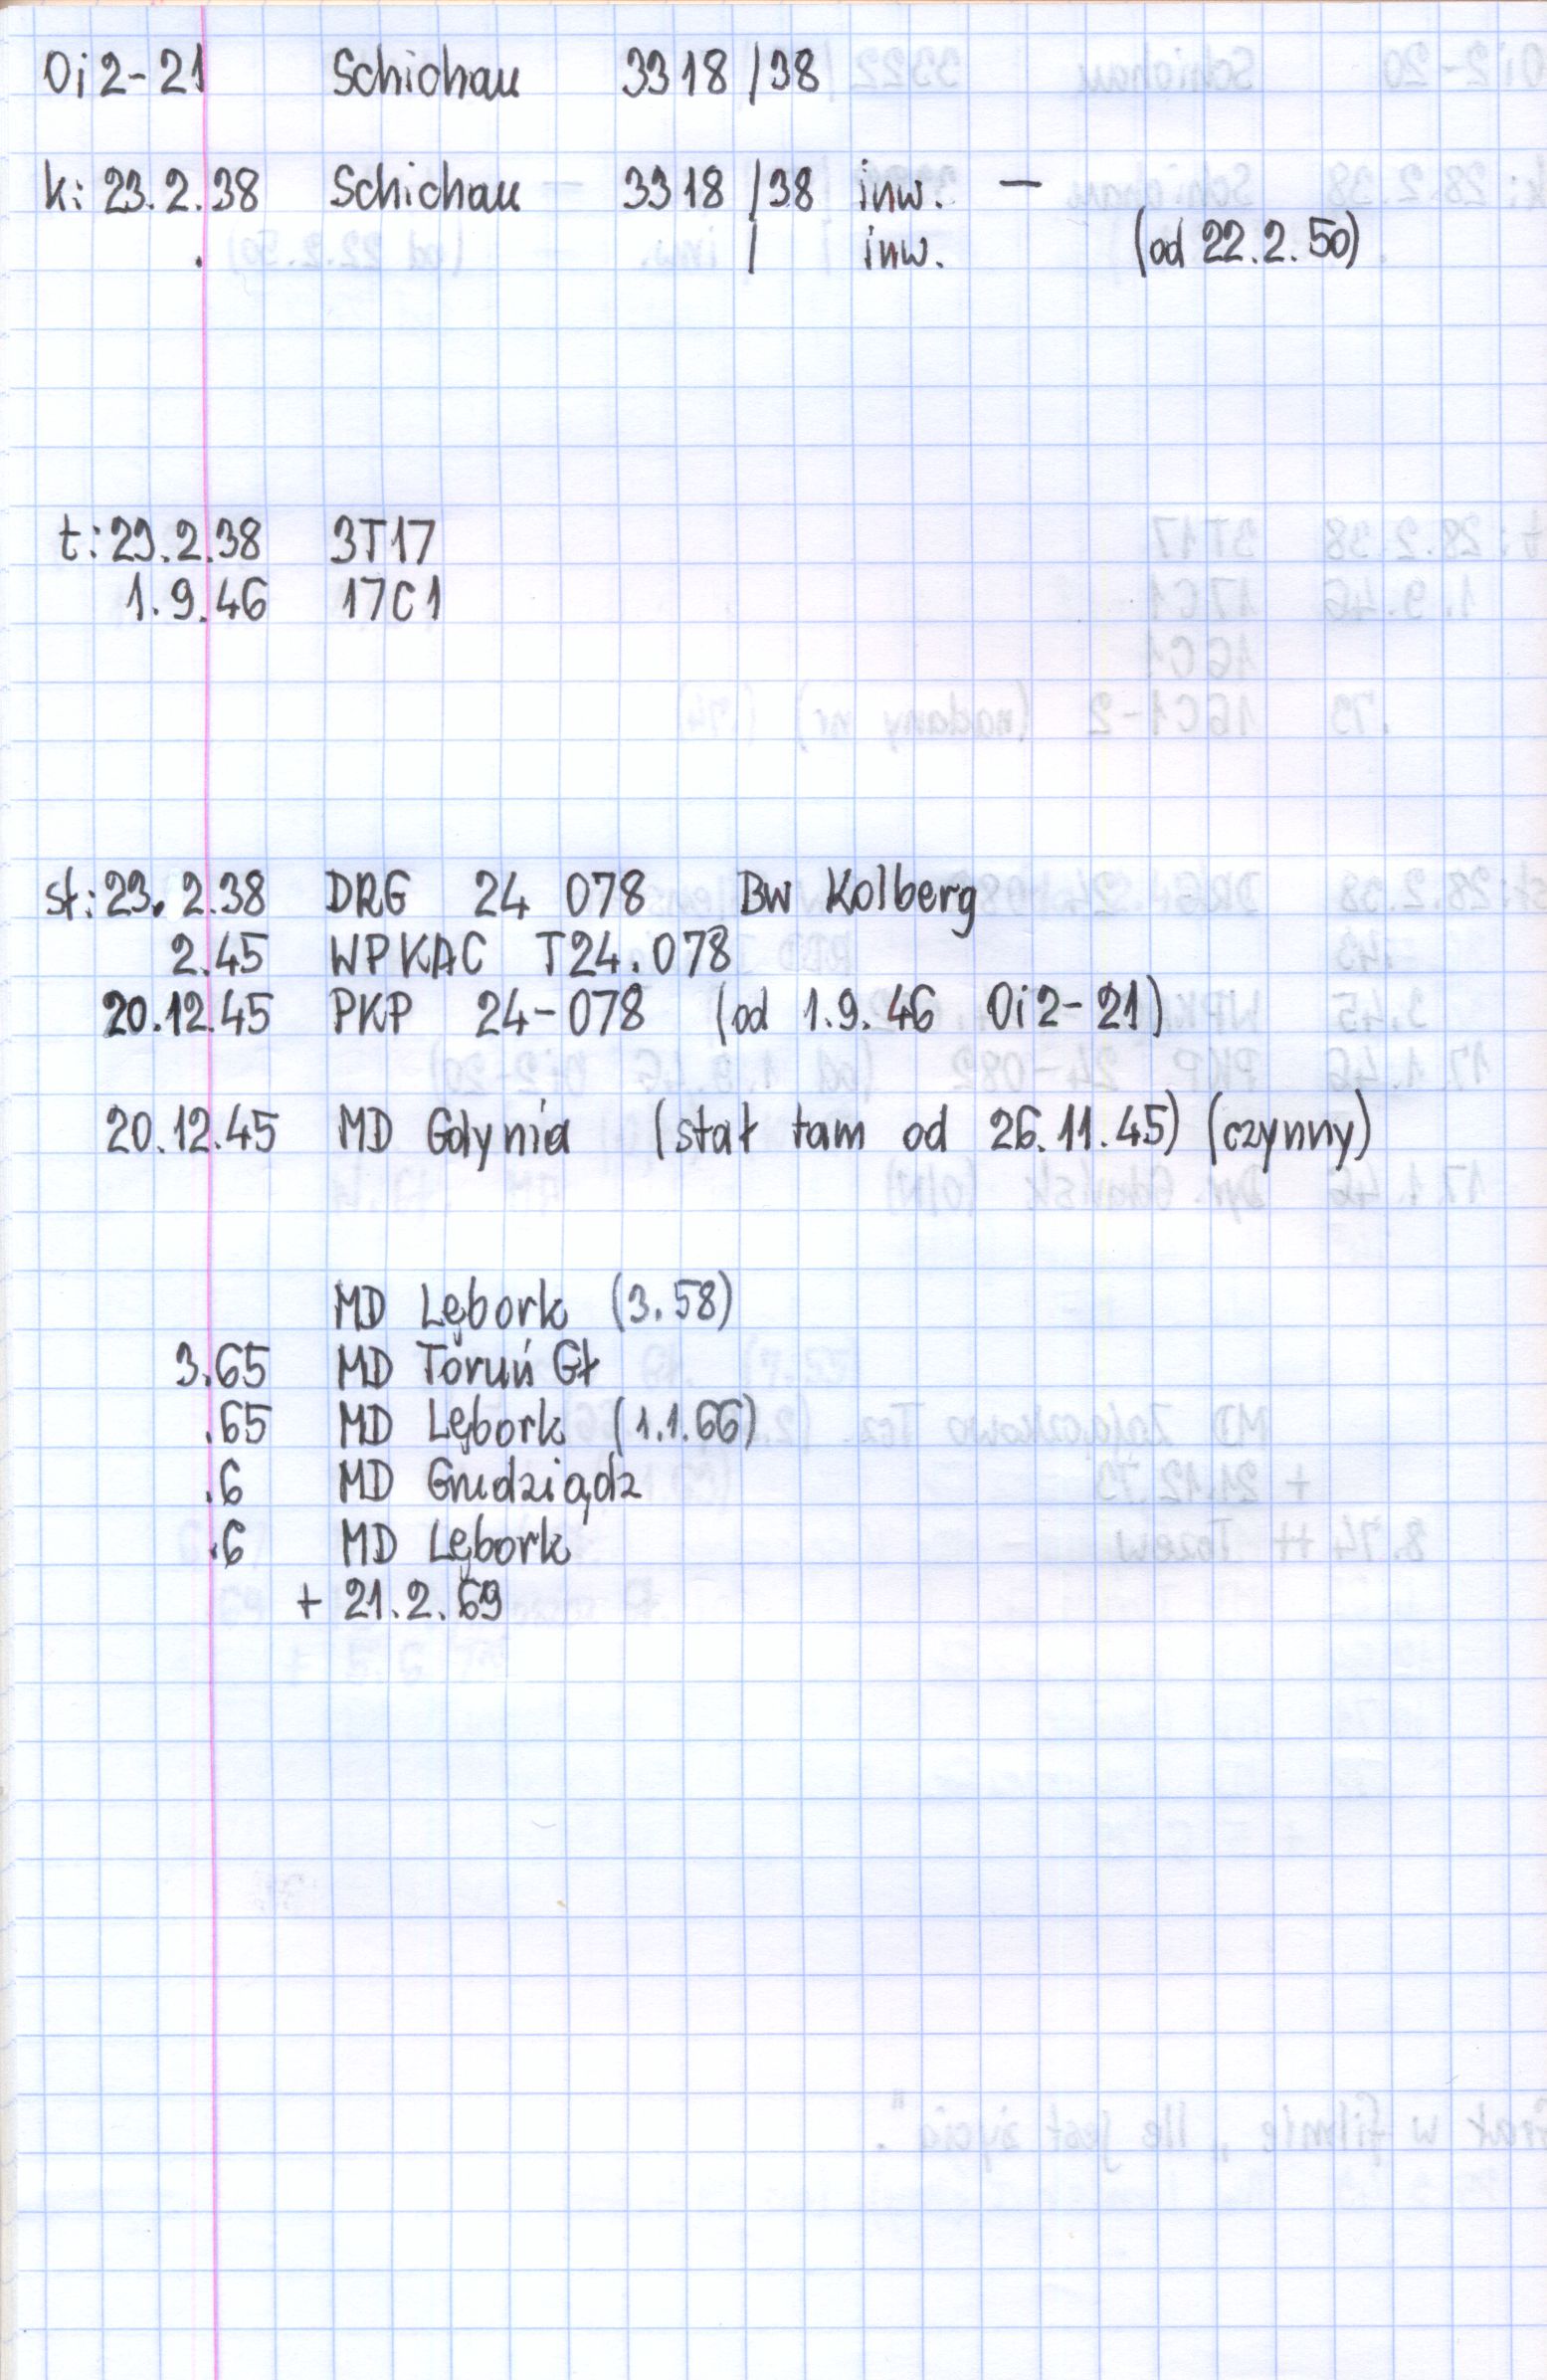 Oi2-21 Schichau 3318/38
k: 23.2.38 Schichau 3318/38 inw. —
. / inw. (od 22.2.50)
t: 23.2.38 3T17
1.9.46 17C1
st: 23.2.38 DRG 24 078 Bw Kolberg
2.45 WPKAC T24.078
20.12.45 PKP 24-078 (od 1.9.46 Oi2-21)
20.12.45 MD Gdynia (stał tam od 26.11.45) (czynny)
MD Lębork (3.58)
3.65 MD Toruń Gł
.65 MD Lębork (1.1.66)
.6 MD Grudziądz
.6 MD Lębork
+ 21.2.69